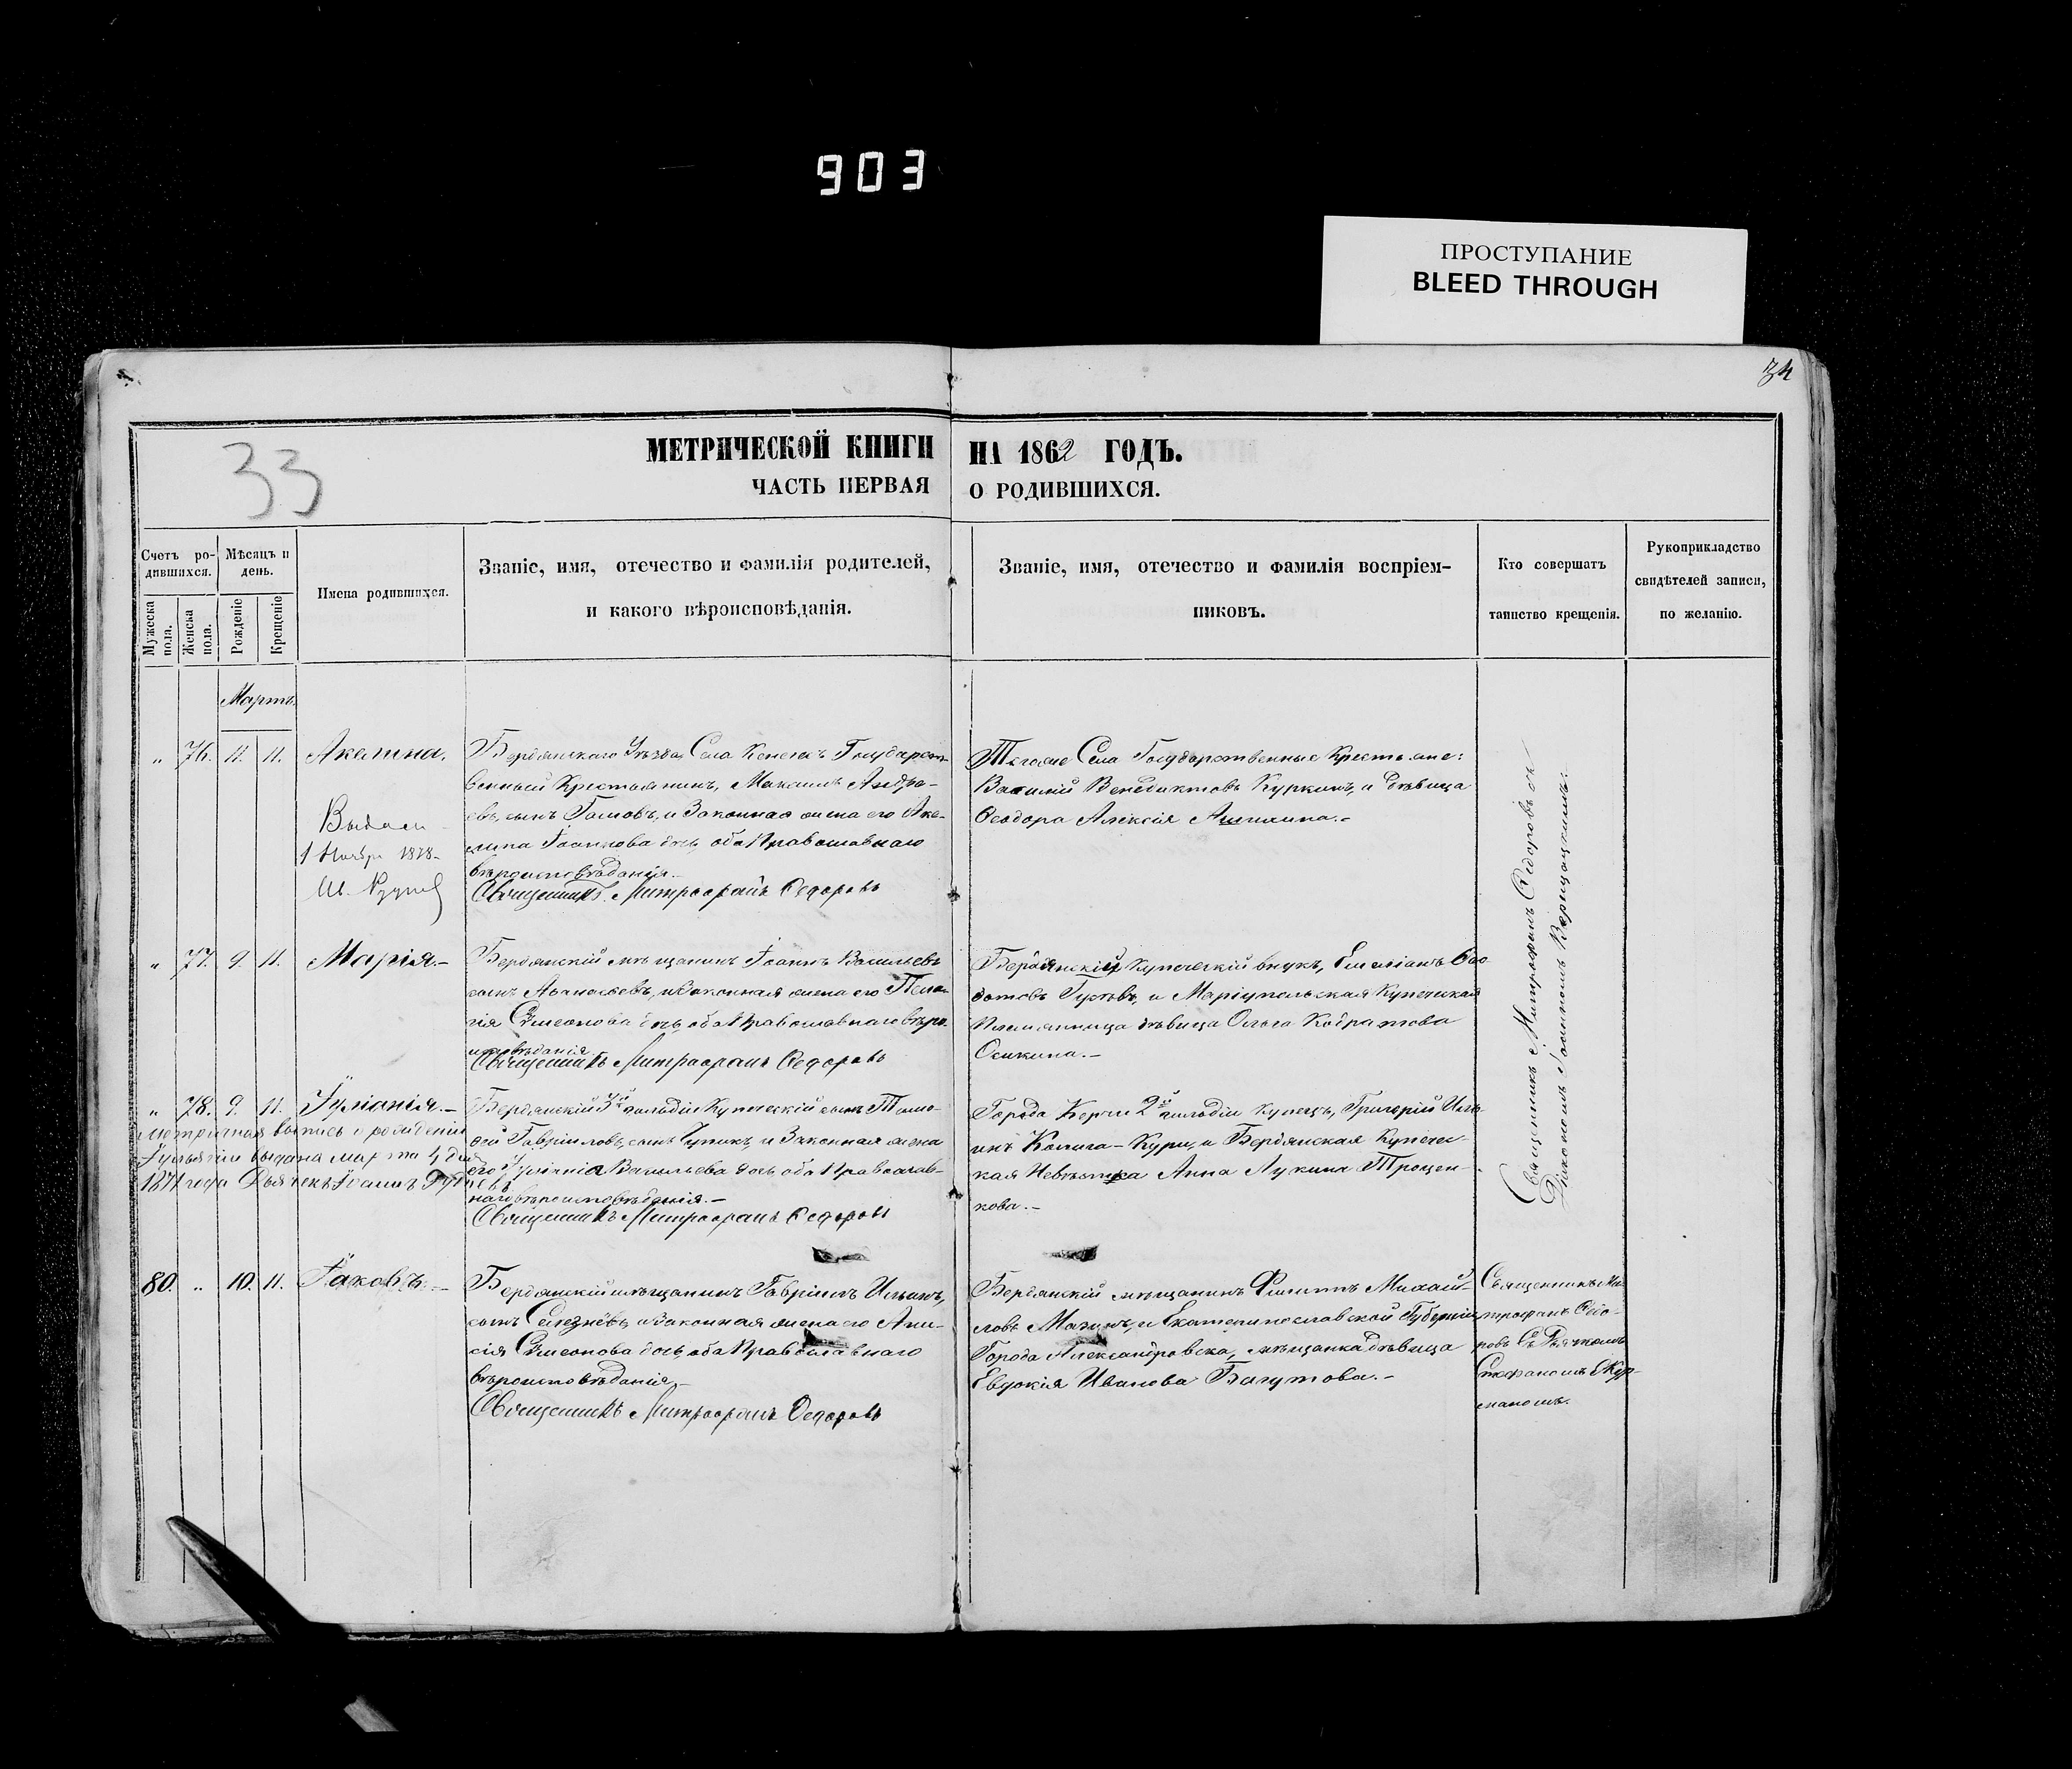 903
ПРОСТУПАНИЕ
BLEED THROUGH
34
33
МЕТРИЧЕСКОЙ КНИГИ НА 1862 ГОДЪ.
ЧАСТЬ ПЕРВАЯ О РОДИВШИХСЯ.
Счетъ ро-
дившихся.
Мужеска пола.
Женска пола.
Мѣсяцъ и
день.
Рожденіе
Крещеніе
Имена родившихся.
Званіе, имя, отечество и фамилія родителей,
и какого вѣроисповѣданія.
Званіе, имя, отечество и фамилія воспріем-
никовъ.
Кто совершатъ
таинство крещенія.
Рукоприкладство
свидѣтелей записи,
по желанію.
Мартъ.
„ 76. 11. 11. Акелина.
Бердянскаго Уѣзда, Села Государст-
венный Крестьянинъ, Максимъ Андре-
евъ, сынъ и Законная жена его Аке-
лина Іоаннова дочь, оба Православнаго
вѣроисповѣданія.-
Священникъ Митрофанъ Федоровъ
Тогоже Села Государственные Крестьяне:
Василій Венедиктовъ Куркинъ, и дѣвица
Феодора Алексія
1 Ноября 1878
„ 77. 9. 11. Марія.-
Бердянскій мѣщанинъ Іоаннъ Васильевъ
сынъ Аѳанасьевъ, и Законная жена его Пела-
гія Симеонова дочь, оба Православнаго вѣро-
исповѣданія
Священникъ Митрофанъ Федоровъ
Бердянскій Купеческій внукъ, Емеліанъ Ѳео-
дотовъ и Маріупольская Купеческая
Племянница дѣвица Ольга Кодратова
Осикина.-
„ 78. 9. 11. Іуліанія.-
Метричная выпись о рожденіи
Іульяніи выдана марта 4 дня
1871 года Дьячекъ Іоаннъ
Бердянскій 3й гильдіи Купеческій сынъ Тимо-
фей Гавріиловъ, сынъ и Законная жена
его Іуліанія Васильева дочь, оба Православ-
наго вѣроисповѣданія.-
Священникъ Митрофанъ Федоровъ
Города Керчи 2й гильдіи Купецъ, Григорій Иль-
инъ и Бердянская Купечес-
кая Невѣстка Анна Лукина Троцен-
кова.-
Священникъ Митрофанъ Федоровъ съ
Діакономъ Іоанномъ
80. „ 10. 11. Іаковъ.-
Бердянскій мѣщанинъ Гавріилъ Ильинъ,
сынъ Селезнёвъ, и Законная жена его Ани-
сія Симеонова дочь, оба Православнаго
вѣроисповѣданія.-
Священникъ Митрофанъ Федоровъ
Бердянскій мѣщанинъ Филиппъ Михай-
ловъ Мазинъ, и Екатеринославской Губерніи,
Города Александровска, мѣщанка дѣвица
Евдокія Иванова Багутова.-
Священникъ Ми-
трофанъ Федо-
ровъ Съ Дьячкомъ
Стефаномъ